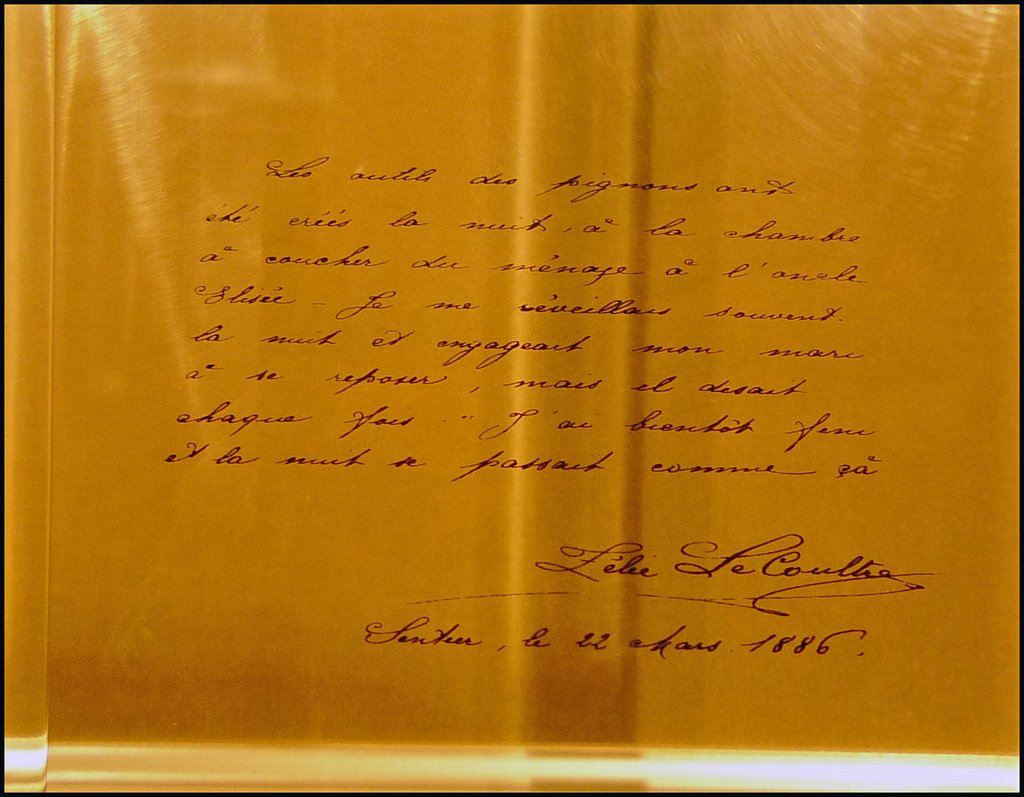 Les outils des pignons ont
été créés la nuit, à la chambre
à coucher du ménage à l'oncle
Elisée - Je me réveillais souvent.
la nuit et engageait mon mari
à se reposer, mais il disait
chaque fois " J'ai bientôt fini
et la nuit se passait comme çà
Zélie LeCoultre
Sentier, le 22 Mars 1886.